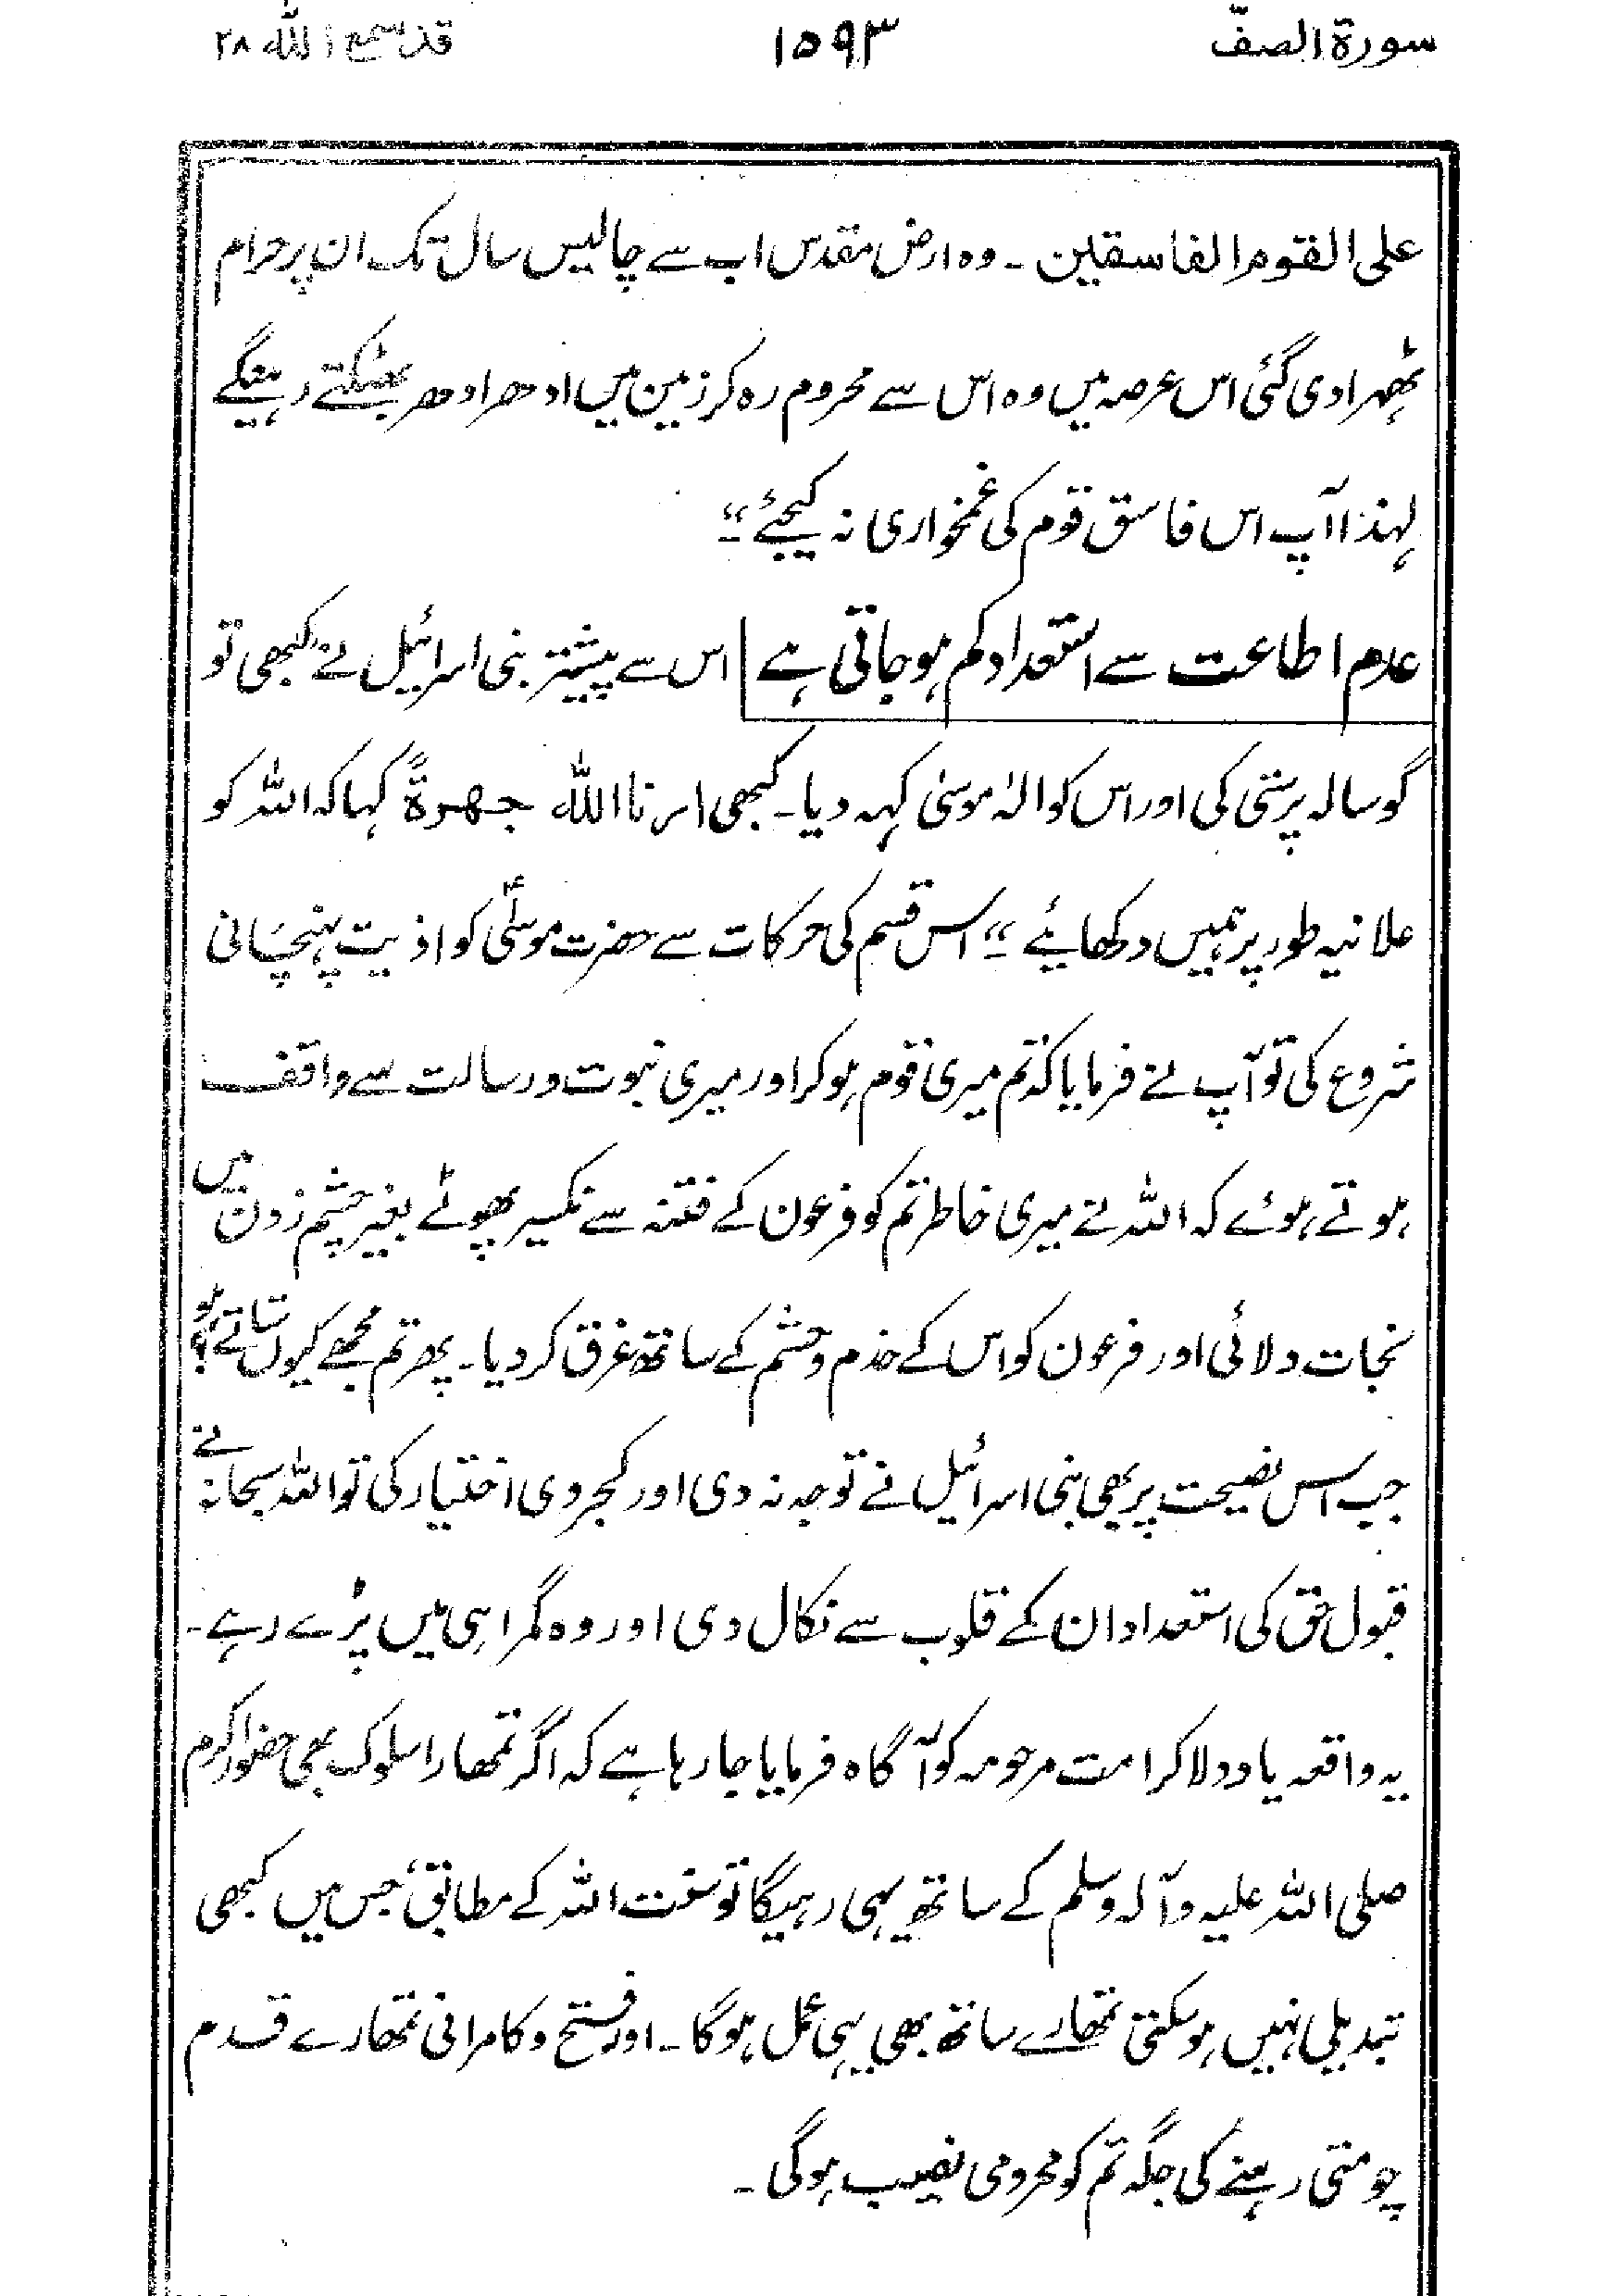 سورة الصفّ ۱۵۹۳ قد سمع اللہ ۲۸
علی القوم الفاسقین ۔ وہ ارض مقدس اب سے چالیس سال تک ان پر حرام
ٹھہرا دی گئی اس عرصہ میں وہ اس سے محروم رہ کر زمین میں ادھر ادھر بھٹکتے رہینگے
لہذا آپ اس فاسق قوم کی غمخواری نہ کیجئے ؛؛
عدم اطاعت سے استعداد کم ہو جاتی ہے اس سے پیشتر بنی اسرائیل نے کبھی تو
گوسالہ پرستی کی اور اس کو الٰہ موسیٰ کہہ دیا ۔ کبھی ارنا اللہ جھرۃً کہا کہ اللہ کو
علانیہ طور پر ہمیں دکھایئے ؛؛ اس قسم کی حرکات سے حضرت موسٰیؑ کو اذیت پہنچانی
شروع کی تو آپ نے فرمایا کہ تم میری قوم ہو کر اور میری نبوت و رسالت سے واقف
ہوتے ہوئے کہ اللہ نے میری خاطر تم کو فرعون کے فتنہ سے نکسیر پھوٹے بغیر چشم زدن میں
نجات دلائی اور فرعون کو اس کے خدم و حشم کے ساتھ غرق کر دیا ۔ پھر تم مجھے کیوں ستاتے ہو؟
جب اس نصیحت پر بھی بنی اسرائیل نے توجہ نہ دی اور کجروی اختیار کی تو اللہ سبحانہ نے
قبول حق کی استعداد ان کے قلوب سے نکال دی اور وہ گمراہی میں پڑے رہے ۔
یہ واقعہ یاد دلا کر امت مرحومہ کو آگاہ فرمایا جا رہا ہے کہ اگر تمھارا سلوک بھی حضور اکرم
صلی اللہ علیہ وآلہ وسلم کے ساتھ یہی رہیگا تو سنت اللہ کے مطابق، جس میں کبھی
تبدیلی نہیں ہو سکتی تمھارے ساتھ بھی یہی عمل ہو گا ۔ اور فتح و کامرانی تمھارے قدم
چومتی رہنے کی جگہ تم کو محرومی نصیب ہو گی ۔